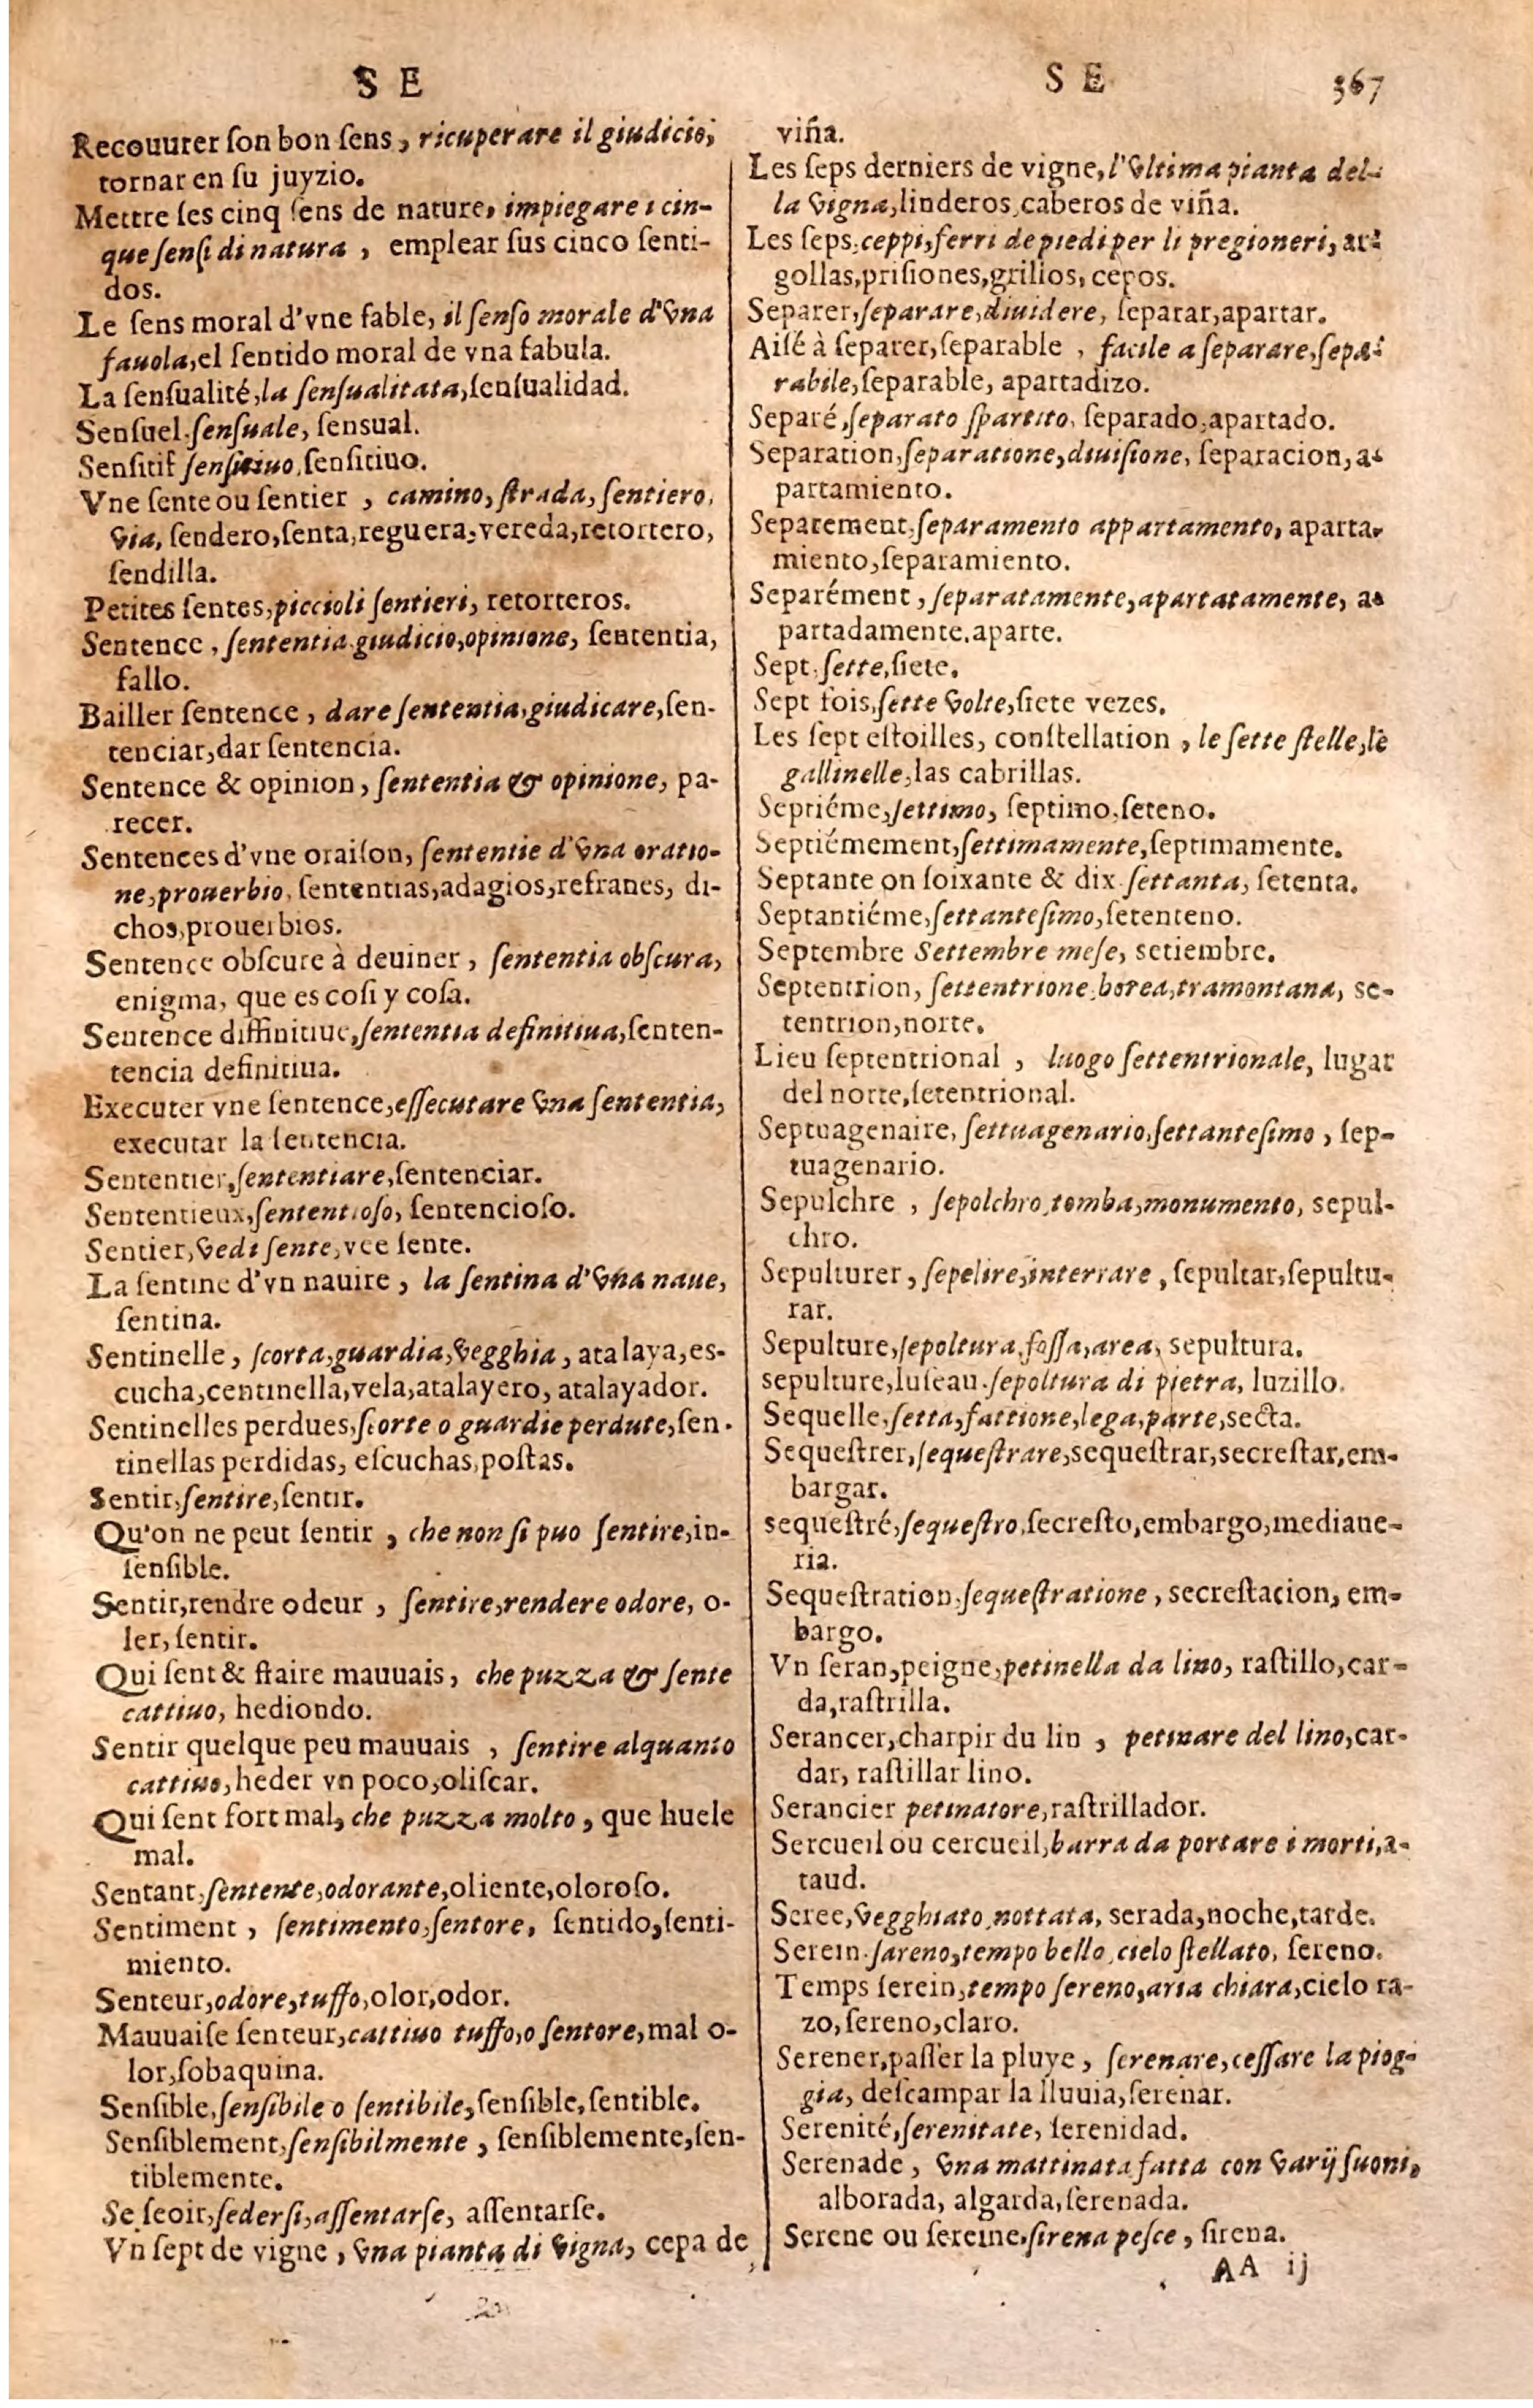 S E
Recouurer ſon bon ſens, ricuperare il giudicio,
tornar en ſu juyzio.
Mettre ſes cinq ſens de nature, impiegare i cin-
que ſenſi di natura, emplear ſus cinco ſenti-
dos.
Le ſens moral d'vne fable, il ſenſo morale d'vna
fauola, el ſentido moral de vna fabula.
La ſenſualité, la ſenſualitata, ſenſualidad.
Senſuel. ſenſuale, ſensual.
Sensitif ſenſitiuo, ſensitiuo.
Vne ſente ou ſentier, camino, ſtrada, ſentiero,
via, ſendero, ſenta, reguera, vereda, retortero,
ſendilla.
Petites ſentes, piccioli ſentieri, retorteros.
Sentence, ſententia. giudicio, opinione, ſententia,
fallo.
Bailler ſentence, dare ſententia, giudicare, ſen-
tenciar, dar ſentencia.
Sentence & opinion, ſententia & opinione, pa-
recer.
Sentences d'vne oraiſon, ſententie d'vna oratio-
ne, prouerbio, ſententias, adagios, refranes, di-
chos, prouerbios.
Sentence obſcure à deuiner, ſententia obſcura,
enigma, que es coſi y coſa.
Sentence diffinitiue, ſententia definitiua, ſenten-
tencia definitiua.
Executer vne ſentence, eſſecutare vna ſententia,
executar la ſentencia.
Sententier, ſententiare, ſentenciar.
Sententieux, ſententioſo, ſentencioſo.
Sentier, vedi ſente, vee ſente.
La ſentine d'vn nauire, la ſentina d'vna naue,
ſentina.
Sentinelle, ſcorta, guardia, vegghia, atalaya, es-
cucha, centinella, vela, atalayero, atalayador.
Sentinelles perdues, ſcorte o guardie perdute, ſen-
tinellas perdidas, eſcuchas, poſtas.
Sentir, ſentire, ſentir.
Qu'on ne peut ſentir, che non ſi puo ſentire, in-
ſenſible.
Sentir, rendre odeur, ſentire, rendere odore, o-
ler, ſentir.
Qui ſent & flaire mauuais, che puzza & ſente
cattiuo, hediondo.
Sentir quelque peu mauuais, ſentire alquanto
cattiuo, heder vn poco, oliſcar.
Qui ſent fort mal, che puzza molto, que huele
mal.
Sentant, ſentente, odorante, oliente, oloroſo.
Sentiment, ſentimento, ſentore, ſentido, ſenti-
miento.
Senteur, odore, tuffo, olor, odor.
Mauuaiſe ſenteur, cattiuo tuffo, o ſentore, mal o-
lor, ſobaquina.
Sensible, ſenſibile o ſentibile, ſensible, ſentible.
Sensiblement, ſenſibilmente, ſensiblemente, ſen-
tiblemente.
Se ſeoir, ſederſi, aſſentarſe, aſſentarſe.
Vn ſept de vigne, vna pianta di vigna, cepa de
S E 367
viña.
Les ſeps derniers de vigne, l'vltima pianta del-
la vigna, linderos, caberos de viña.
Les ſeps, ceppi, ferri de piedi per li pregioneri, ar-
gollas, priſiones, grillos, cepos.
Separer, ſeparare, diuidere, ſeparar, apartar.
Aiſé à ſeparer, ſeparable, facile a ſeparare, ſepa-
rabile, ſeparable, apartadizo.
Separé, ſeparato ſpartito, ſeparado, apartado.
Separation, ſeparatione, diuiſione, ſeparacion, a-
partamiento.
Separement, ſeparamento appartamento, aparta-
miento, ſeparamiento.
Separément, ſeparatamente, apartatamente, a-
partadamente. aparte.
Sept, ſette, ſiete.
Sept fois, ſette volte, ſiete vezes.
Les ſept eſtoilles, conſtellation, le ſette ſtelle, le
gallinelle, las cabrillas.
Septiéme, ſettimo, ſeptimo, ſeteno.
Septiémement, ſettimamente, ſeptimamente.
Septante on ſoixante & dix. ſettanta, ſetenta.
Septantiéme, ſettanteſimo, ſetenteno.
Septembre Settembre meſe, setiembre.
Septentrion, ſettentrione, borea, tramontana, se-
tentrion, norte.
Lieu ſeptentrional, luogo ſettentrionale, lugar
del norte, ſetentrional.
Septuagenaire, ſettuagenario, ſettanteſimo, ſep-
tuagenario.
Sepulchre, ſepolchro, tomba, monumento, sepul-
chro.
Sepulturer, ſepelire, interrare, ſepultar, ſepultu-
rar.
Sepulture, ſepoltura, foſſa, area, sepultura.
sepulture, luſeau. ſepoltura di pietra, luzillo.
Sequelle, ſetta, fattione, lega, parte, secta.
Sequeſtrer, ſequeſtrare, sequeſtrar, secreſtar, em-
bargar.
sequeſtré, ſequeſtro, ſecreſto, embargo, mediane-
ria.
Sequeſtration, ſequeſtratione, secreſtacion, em-
bargo.
Vn ſeran, peigne, petinella da lino, raſtillo, car-
da, raſtrilla.
Serancer, charpir du lin, petinare del lino, car-
dar, raſtillar lino.
Serancier petinatore, raſtrillador.
Sercueil ou cercueil, barra da portare i morti, a-
taud.
Seree, vegghiato, nottata, serada, noche, tarde.
Serein. ſareno, tempo bello, cielo ſtellato, ſereno.
Temps ſerein, tempo ſereno, aria chiara, cielo ra-
zo, ſereno, claro.
Serener, paſſer la pluye, ſerenare, ceſſare la piog-
gia, deſcampar la lluuia, ſerenar.
Serenité, ſerenitate, ſerenidad.
Serenade, vna mattinata fatta con varij ſuoni,
alborada, algarda, ſerenada.
Serene ou ſereine. sirena peſce, ſirena.
AA ij